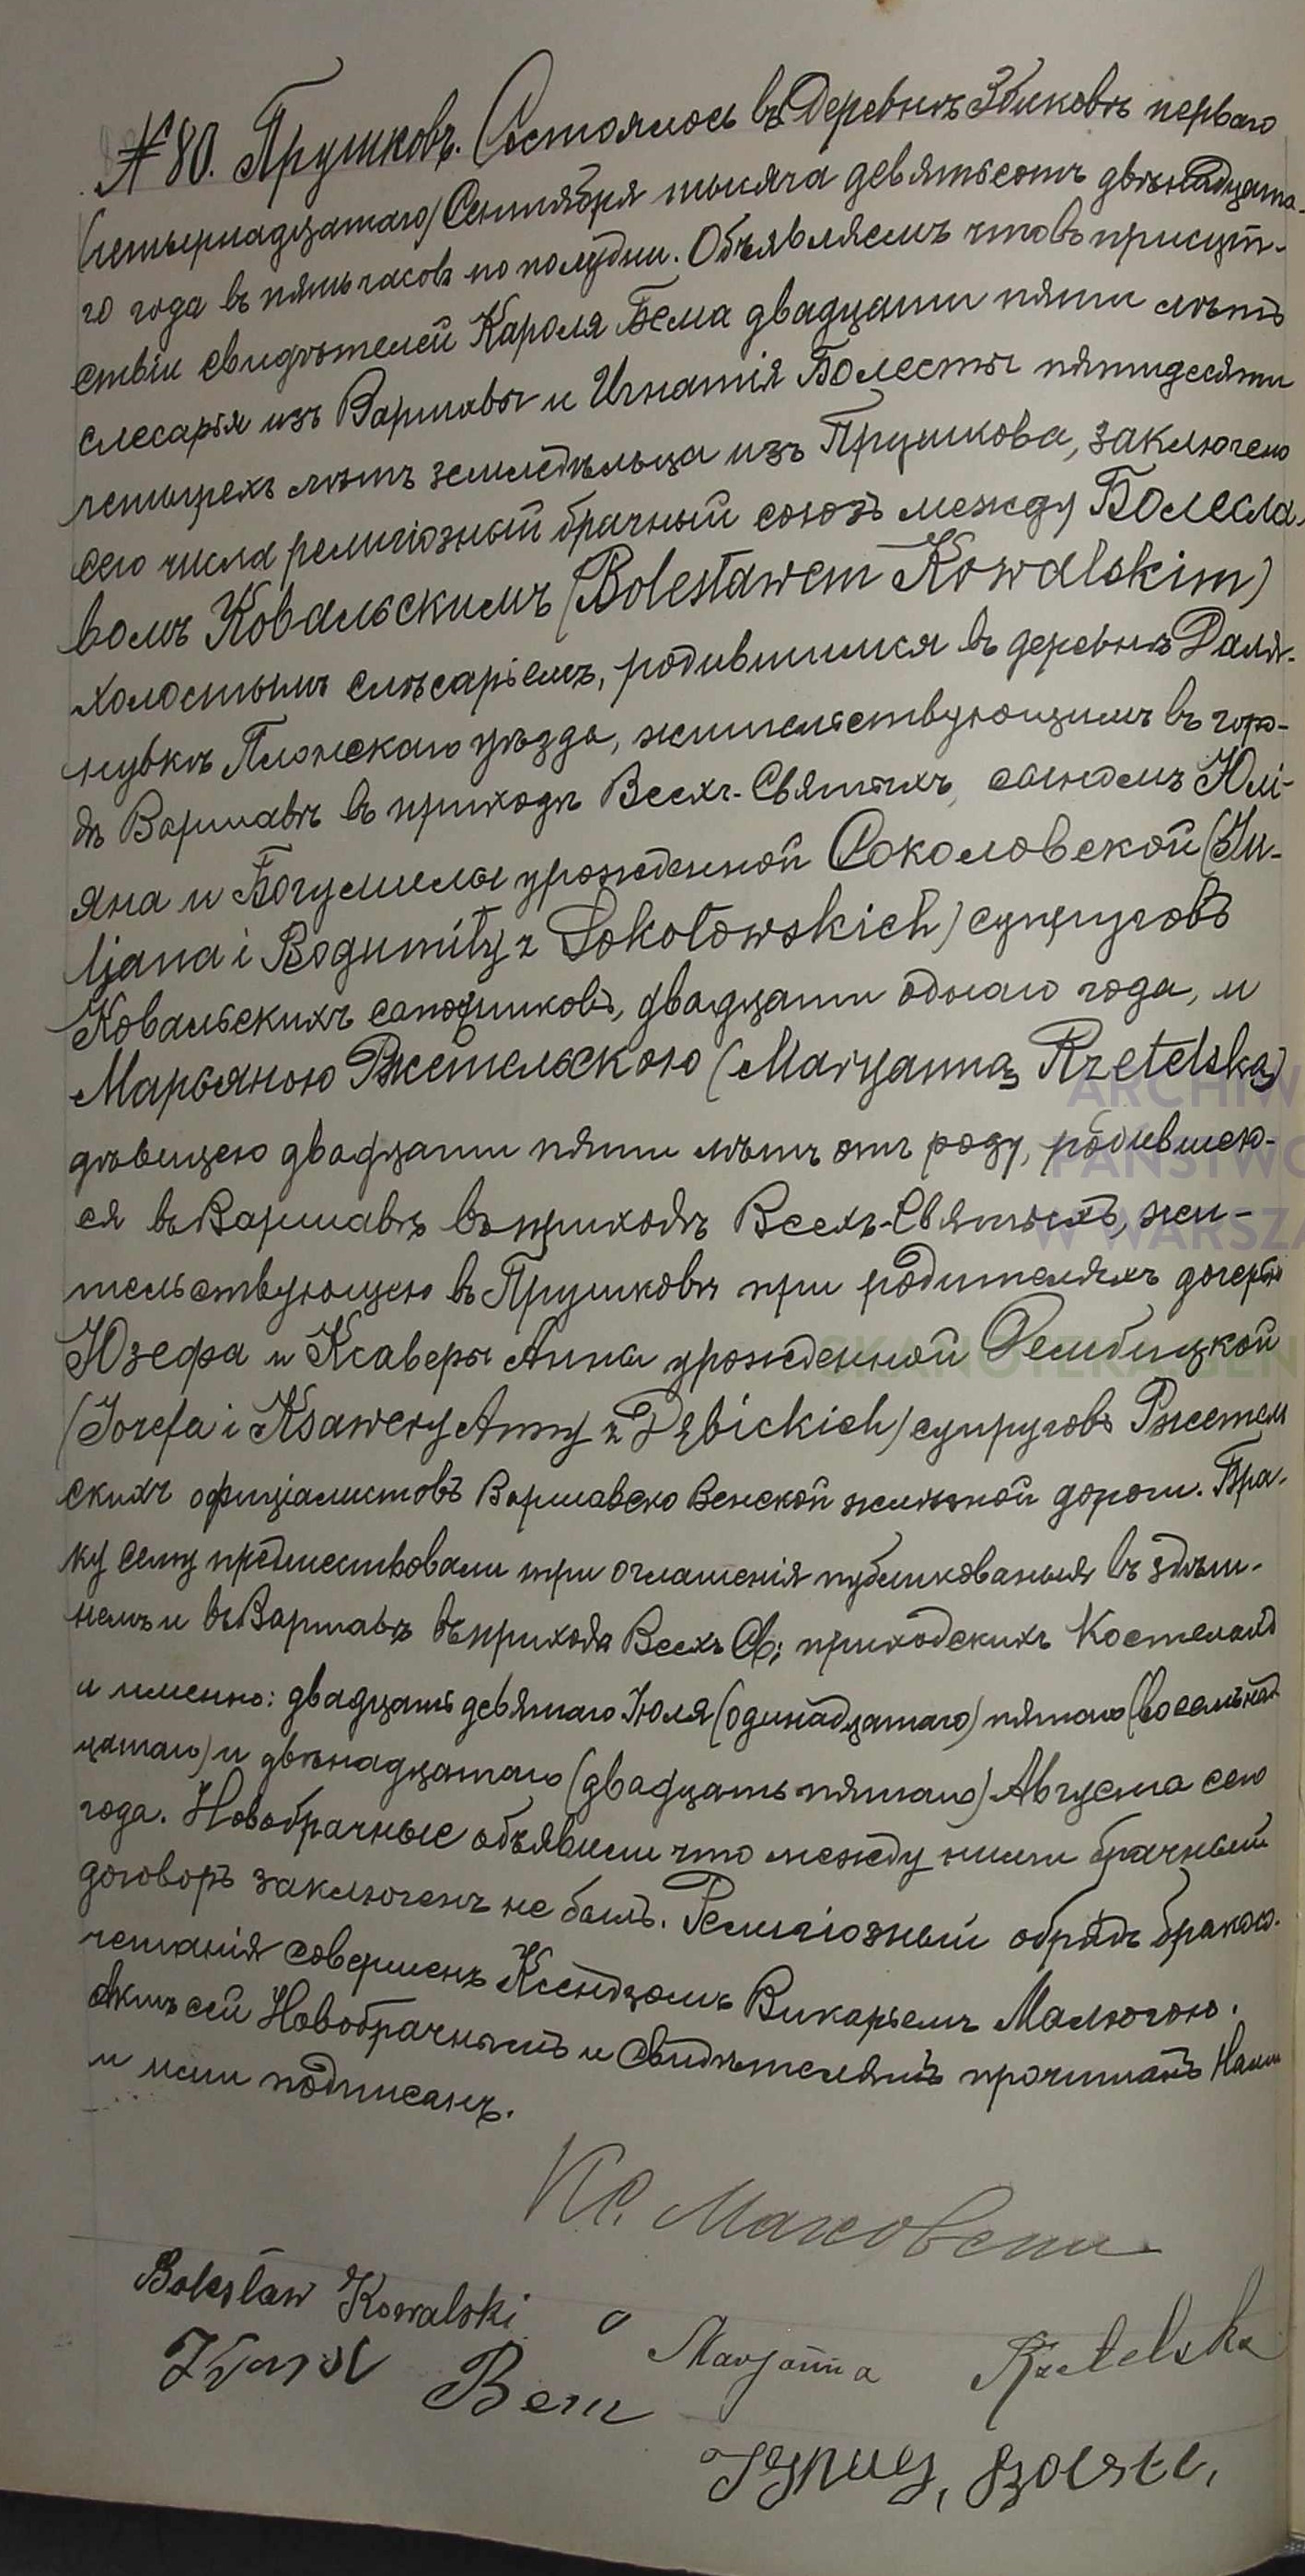 № 80. Прушковъ. Состоялось въ Деревнѣ Збиковѣ перваго
(четырнадцатаго) Сентября тысяча девятьсотъ двѣнадцата-
го года въ пять часовъ по полудни. Объявляемъ что въ присут-
ствіи свидѣтелей Кароля Бема двадцати пяти лѣтъ
слесаря изъ Варшавы и Игнатія Болесты пятидесяти
четырехъ лѣтъ земледѣльца изъ Прушкова, заключено
сего числа религіозный брачный союзъ между Болесла-
вомъ Ковальскимъ (Bolesławem Kowalskim)
холостымъ слѣсаріемъ, родившимся въ деревнѣ Даля-
нувкѣ Плонскаго уѣзда, жительствующимъ въ горо-
дѣ Варшавѣ въ приходѣ Всехъ-Святыхъ, сыномъ Юлі-
яна и Богумилы урожденной Соколовской (Ju-
ljana i Bogumiły z Sokołowskich) супруговъ
Ковальскихъ сапожниковъ, двадцати однаго года, и
Марьяною Ржетельскою (Maryanną Rzetelską)
дѣвицею двадцати пяти лѣтъ отъ роду, родившею-
ся въ Варшавѣ въ приходѣ Всехъ-Святыхъ, жи-
тельствующею въ Прушковѣ при родителяхъ дочерью
Юзефа и Ксаверы Анны урожденной Дембицкой
(Józefa i Ksawery Anny z Dębickich) супруговъ Ржетель
скихъ официалистовъ Варшавско Венской желѣзной дороги. Бра-
ку сему предшествовали три оглашенія публикованыя въ здѣш-
немъ и въ Варшавѣ въ прихода Всехъ Св: приходскихъ Костелахъ
и именно: двадцать девятаго Іюля (одинадцатаго) пятаго (восемнад-
цатаго) и двѣнадцатаго (двадцать пятаго) Августа сего
года. Новобрачные объявили что между ними брачный
договоръ заключенъ не былъ. Религіозный обрядъ бракосо-
четанія совершенъ Ксендзомъ Викаріемъ Малюгою.
Актъ сей Новобрачнымъ и Свидѣтелямъ прочитанъ Нами
и ими подписанъ.
Кс.
Bolesław Kowalski
Marjanna Rzetelska
Karol Bem